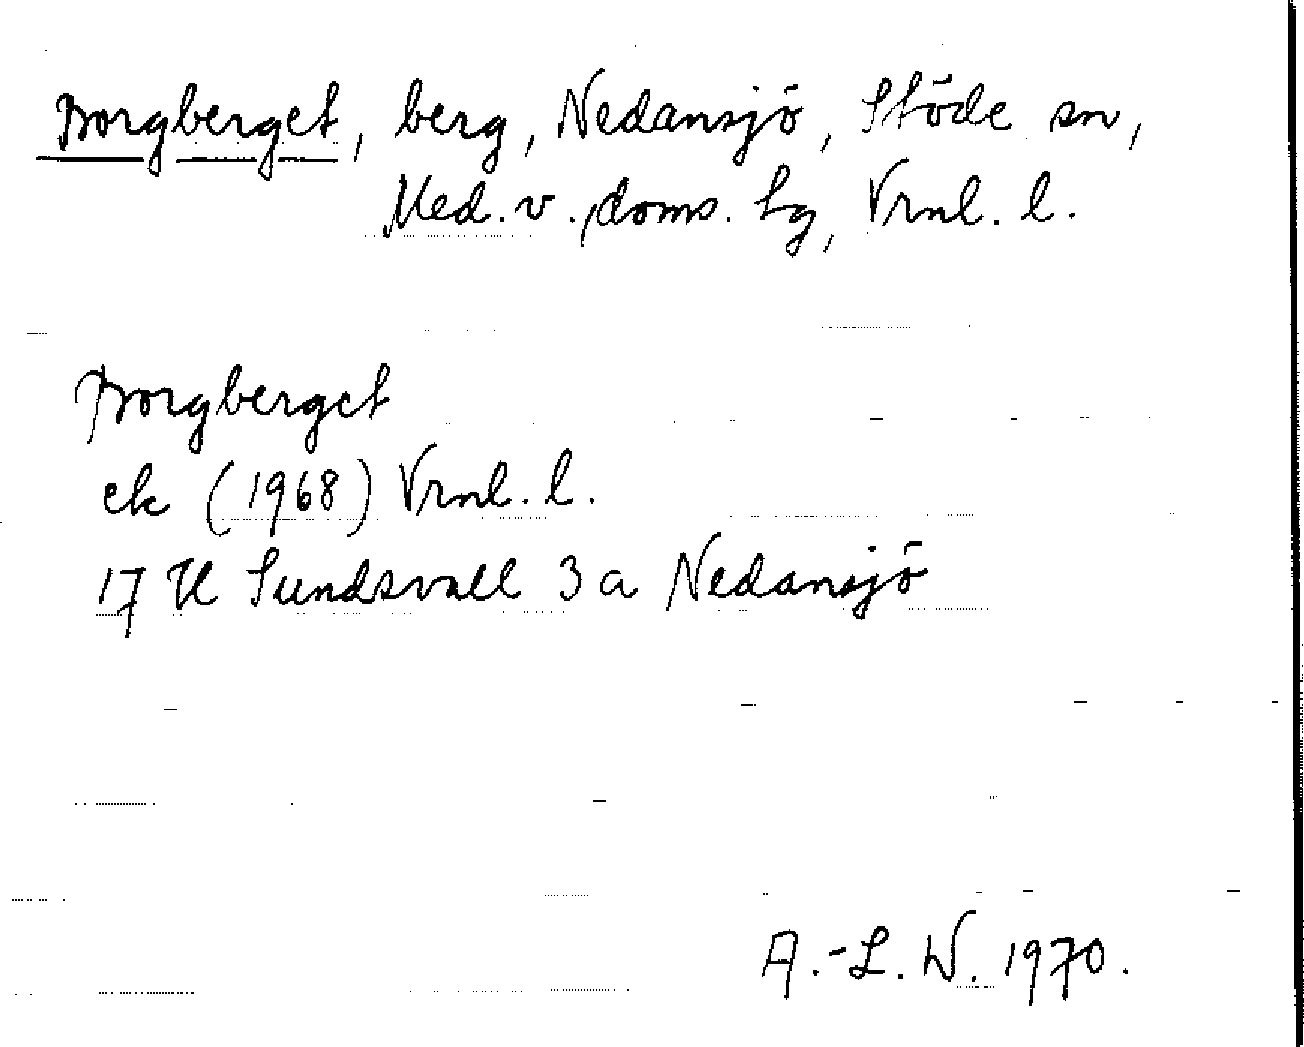 Borgberget, berg, Nedansjö, Stöde sn,
Med. v., doms. hg, Vrnl. l.
Borgberget
ek (1968) Vrnl. l.
17 H Sundsvall 3 a Nedansjö
A.-L. W. 1970.